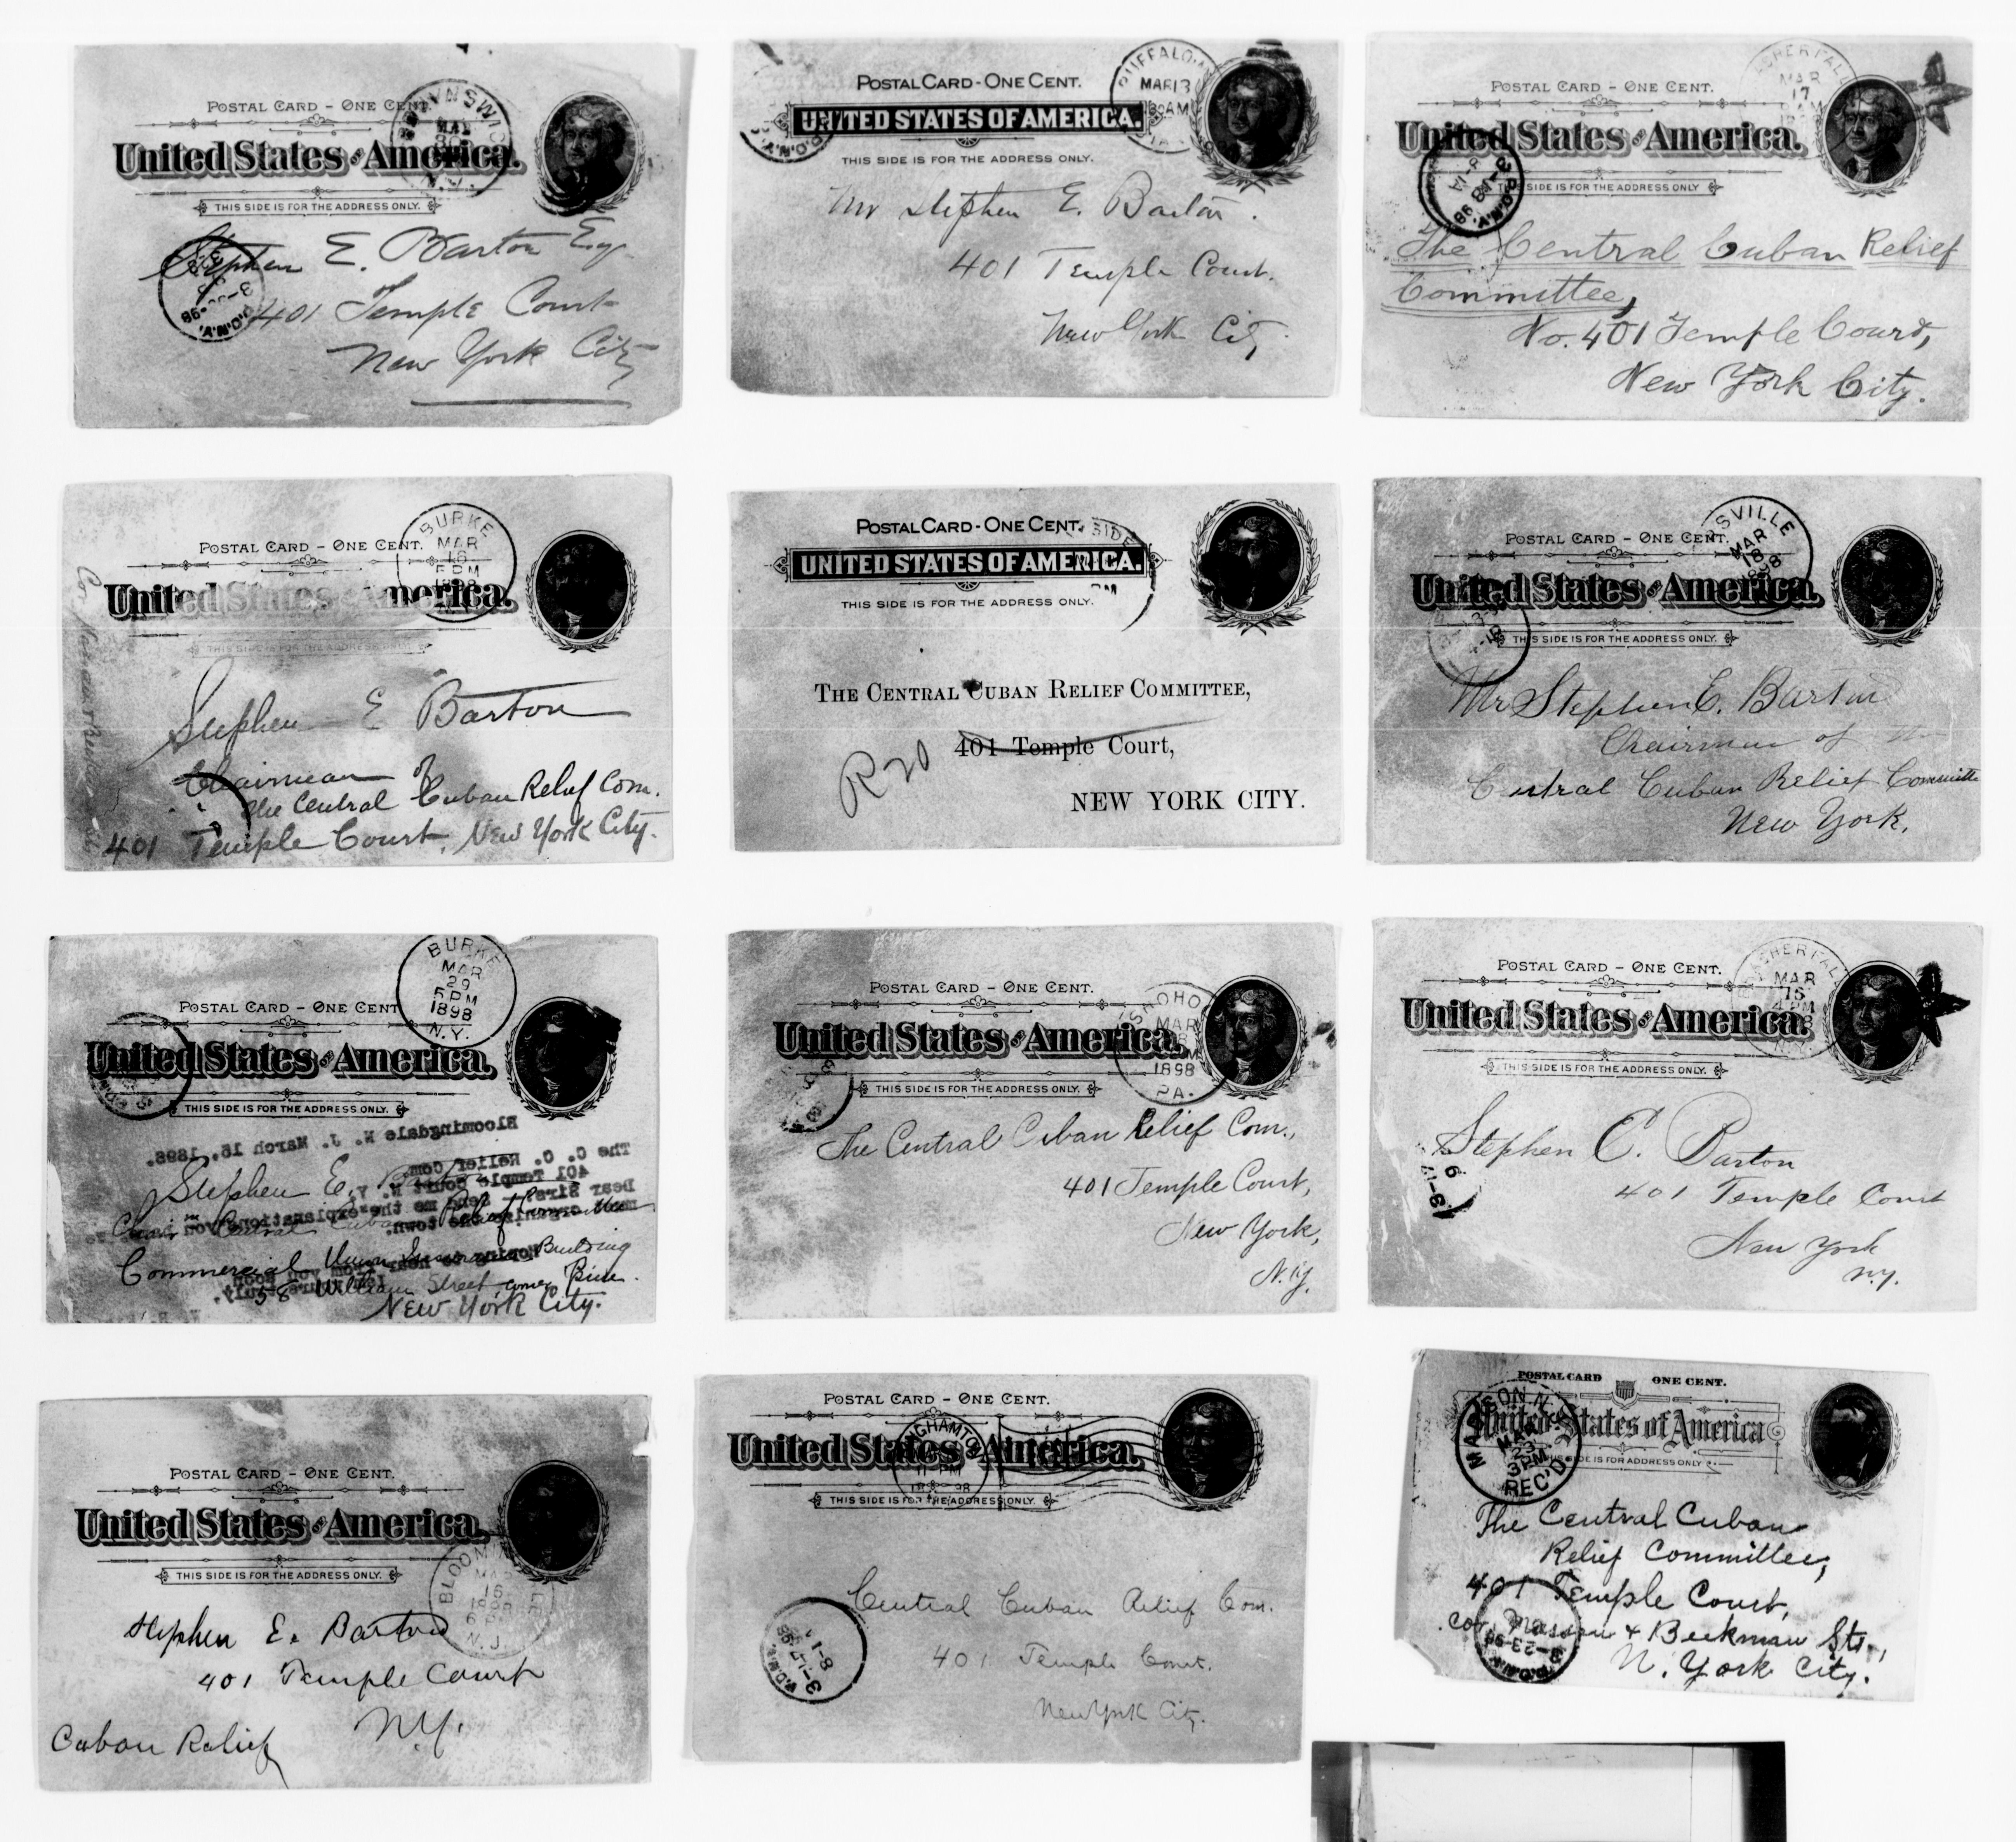 POSTAL CARD - ONE CENT.
United States of America.
THIS SIDE IS FOR THE ADDRESS ONLY.
Stephen E. Barton Esq.
401 Temple Court
New York City
POSTAL CARD - ONE CENT.
UNITED STATES OF AMERICA.
THIS SIDE IS FOR THE ADDRESS ONLY.
BUFFALO, N.
MAR 13
Mr Stephen E. Barton.
401 Temple Court.
New York City
POSTAL CARD - ONE CENT.
United States of America.
THIS SIDE IS FOR THE ADDRESS ONLY.
MAR
17
The Central Cuban Relief
Committee,
No. 401 Temple Court,
New York City.
POSTAL CARD - ONE CENT.
United States of America.
THIS SIDE IS FOR THE ADDRESS ONLY.
BURKE
MAR
16
5 PM
1898
Stephen E Barton
Chairman of
the Central Cuban Relief Com.
401 Temple Court, New York City.
POSTAL CARD - ONE CENT.
UNITED STATES OF AMERICA.
THIS SIDE IS FOR THE ADDRESS ONLY.
THE CENTRAL CUBAN RELIEF COMMITTEE,
401 Temple Court,
NEW YORK CITY.
POSTAL CARD - ONE CENT.
United States of America.
THIS SIDE IS FOR THE ADDRESS ONLY.
SVILLE
MAR
18
1898
Mr Stephen E. Barton
Chairman of the
Central Cuban Relief Committe
New York.
POSTAL CARD - ONE CENT
United States of America.
THIS SIDE IS FOR THE ADDRESS ONLY.
BURKE
MAR
29
5 PM
1898
N.Y.
Bloomingdale N. J. March 15, 1898.
The C. C. Relief Com.
401 Temple Court N. Y.
Stephen E. Barton
Central Cuban Relief Committee
Commercial Union Insurance Building
58 William Street, corner Pine.
New York City.
POSTAL CARD - ONE CENT.
United States of America.
THIS SIDE IS FOR THE ADDRESS ONLY.
MAR
1898
PA.
The Central Cuban Relief Com.,
401 Temple Court,
New York,
N.Y.
POSTAL CARD - ONE CENT.
United States of America.
THIS SIDE IS FOR THE ADDRESS ONLY.
MAR
16
4 PM
Stephen E. Barton
401 Temple Court
New York
N.Y.
POSTAL CARD - ONE CENT.
United States of America.
THIS SIDE IS FOR THE ADDRESS ONLY.
16
N.J.
Stephen E. Barton
401 Temple Court
N.Y.
Cuban Relief
POSTAL CARD - ONE CENT.
United States of America.
THIS SIDE IS FOR THE ADDRESS ONLY.
Central Cuban Relief Com.
401 Temple Court.
New York City.
POSTAL CARD ONE CENT.
United States of America
THIS SIDE IS FOR ADDRESS ONLY
MADISON N.J.
MAR
23
3 PM
REC'D
The Central Cuban
Relief Committee,
401 Temple Court,
Cor. Nassau & Beekman Sts.,
N. York City.